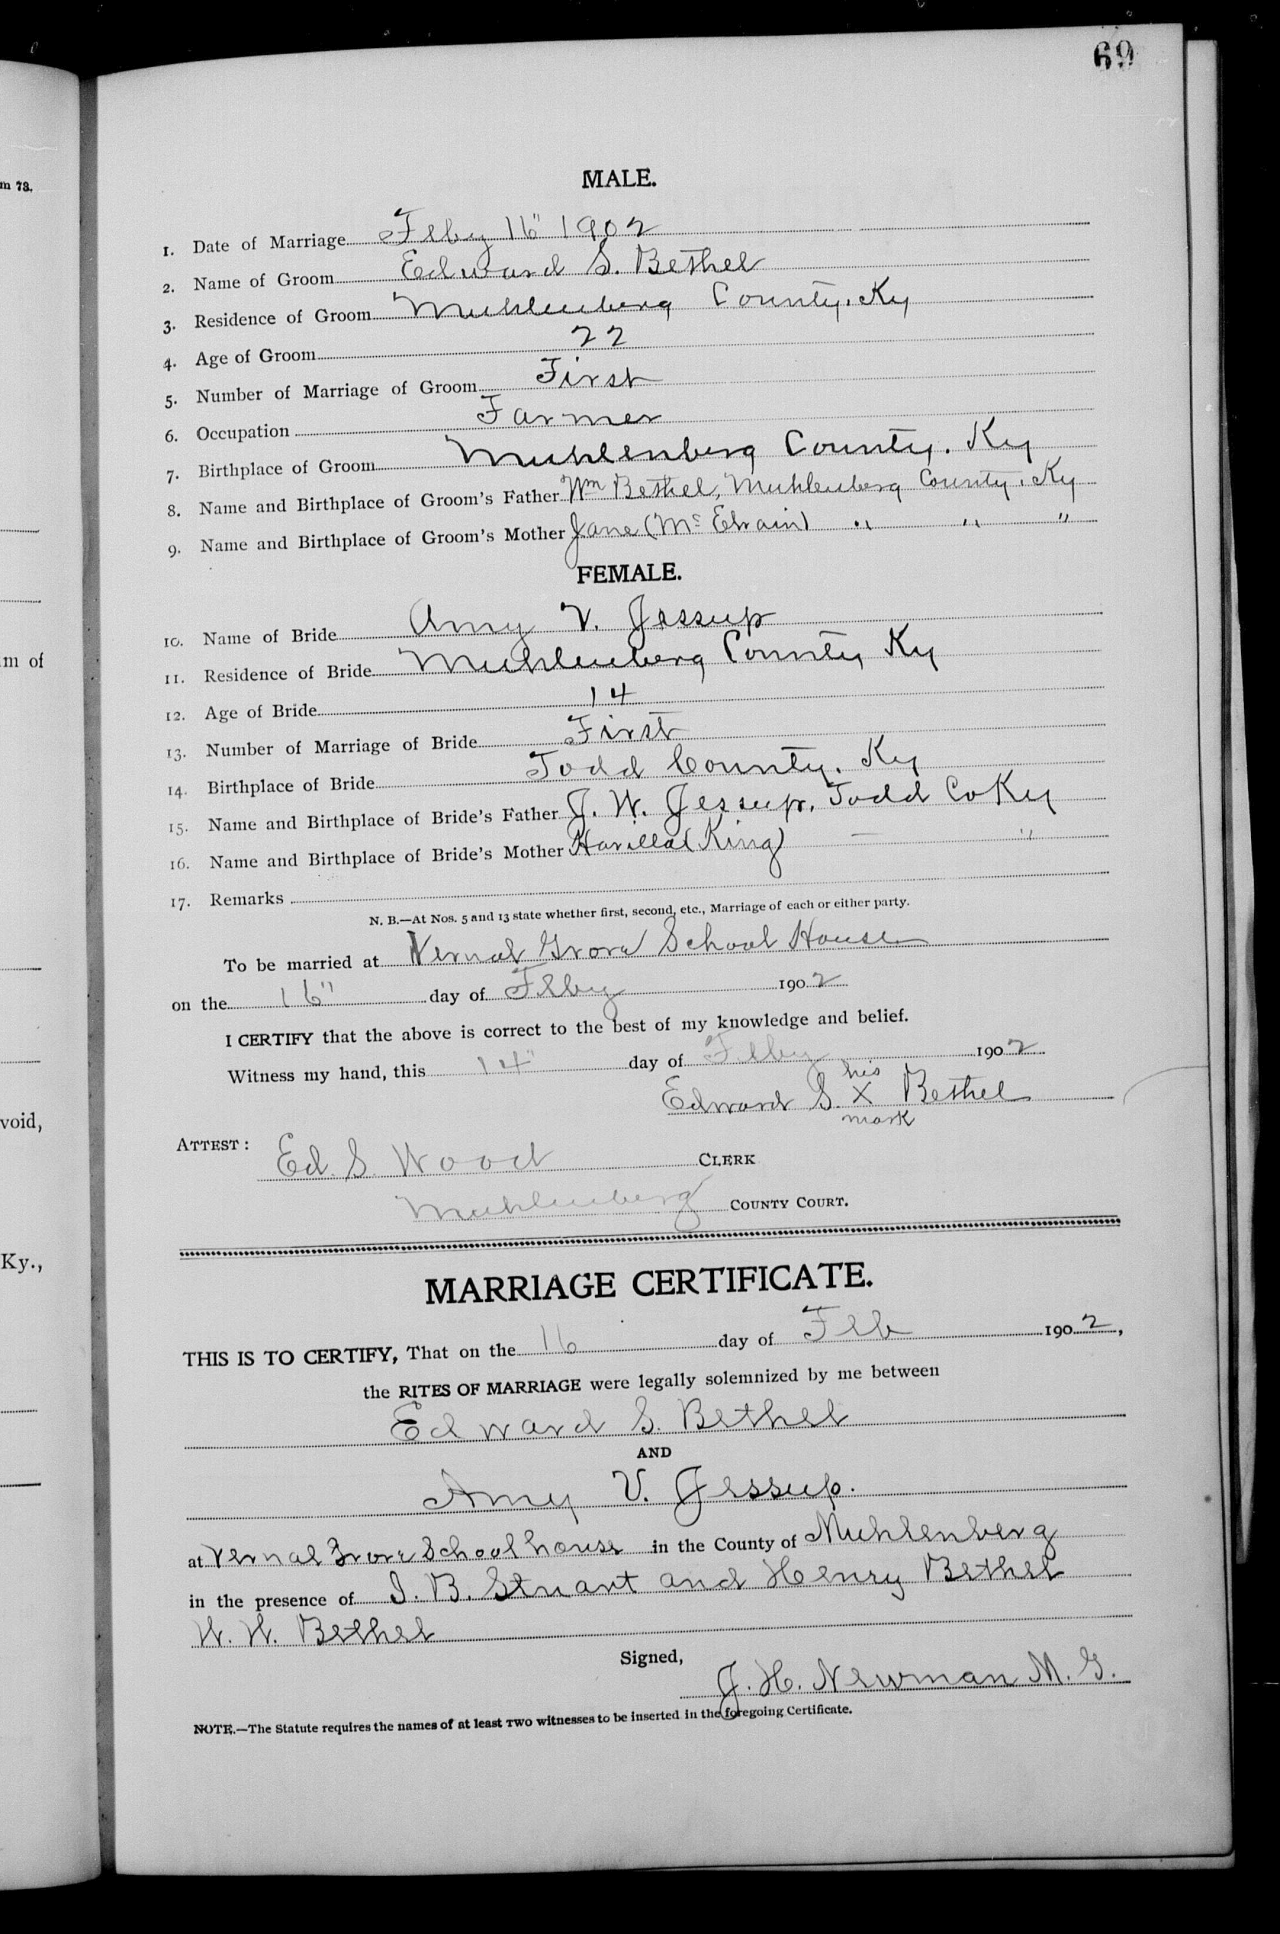 69
m 73.
MALE.
1. Date of Marriage Feby 16" 1902
2. Name of Groom Edward S. Bethel
3. Residence of Groom Muhlenberg County, Ky
4. Age of Groom 22
5. Number of Marriage of Groom First
6. Occupation Farmer
7. Birthplace of Groom Muhlenberg County. Ky
8. Name and Birthplace of Groom's Father Wm Bethel, Muhlenberg County, Ky
9. Name and Birthplace of Groom's Mother Jane (Mc Elvain) " " "
FEMALE.
10. Name of Bride Amy V. Jessup
m of
11. Residence of Bride Muhlenberg County Ky
12. Age of Bride 14
13. Number of Marriage of Bride First
14. Birthplace of Bride Todd County. Ky
15. Name and Birthplace of Bride's Father J. W. Jessup, Todd Co Ky
16. Name and Birthplace of Bride's Mother Havilla (King) — "
17. Remarks
N. B.—At Nos. 5 and 13 state whether first, second, etc., Marriage of each or either party.
To be married at Vernal Grove School House
on the 16" day of Feby 1902
I CERTIFY that the above is correct to the best of my knowledge and belief.
Witness my hand, this 14" day of Feby 1902
his
Edward S. X Bethel
mark
void,
ATTEST: Ed. S. Wood CLERK
Muhlenberg COUNTY COURT.
Ky.,
MARRIAGE CERTIFICATE.
THIS IS TO CERTIFY, That on the 16 day of Feb 1902,
the RITES OF MARRIAGE were legally solemnized by me between
Edward S. Bethel
AND
Amy V. Jessup.
at Vernal Grove School house in the County of Muhlenberg
in the presence of J. B. Stuart and Henry Bethel
W. W. Bethel
Signed,
J. H. Newman M. G.
NOTE.—The Statute requires the names of at least TWO witnesses to be inserted in the foregoing Certificate.